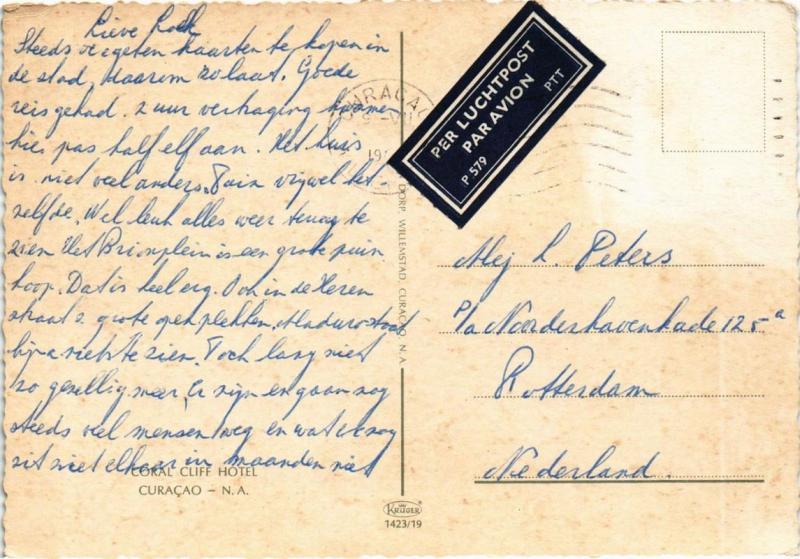 Lieve
Steeds vergeten kaarten te kopen in
de stad, daarom zo laat. Goede
reis gehad. 2 uur vertraging kwamen
hier pas half elf aan. Het huis
is niet veel anders. Tuin vrijwel het
zelfde. Wel leuk alles weer terug te
zien. Het Brionplein is een grote puin
hoop. Dat is heel erg. Ook in de Heren
straat 2 grote open plekken. Madurostraat
bijna niets te zien. Toch lang niet
zo gezellig meer. Er zijn en gaan nog
steeds veel mensen weg en wat er nog
zit ziet elkaar in maanden niet
CORAL CLIFF HOTEL
CURAÇAO – N.A.
DORP, WILLEMSTAD, CURAÇAO, N.A.
KRÜGER
1423/19
CURAÇAO
PER LUCHTPOST
PAR AVION
P. 579
PTT
Mej L. Peters
P/a Noorderhavenkade 125a
Rotterdam
Nederland.